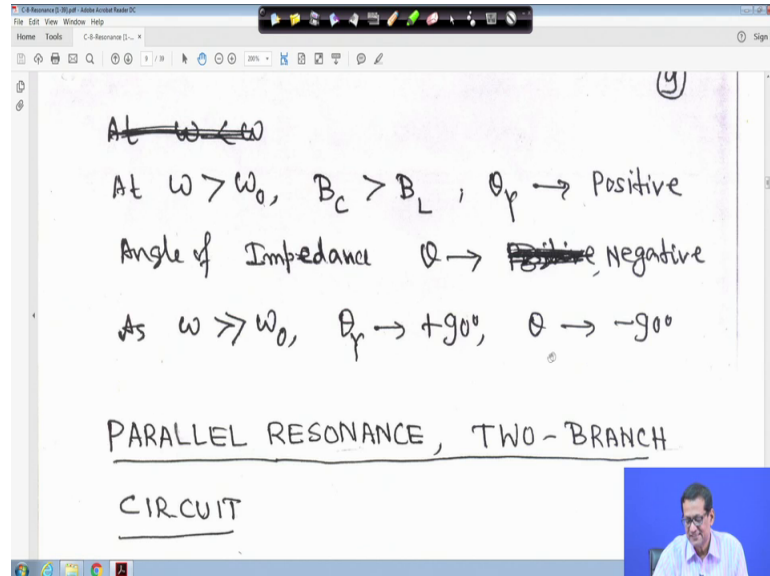 C-8-Resonance [1-39].pdf - Adobe Acrobat Reader DC
File Edit View Window Help
Home Tools C-8-Resonance [1-... × Sign
9 / 39 200%
(9)
At ω < ω
At ω > ω₀, B_C > B_L ; θ_Y → Positive
Angle of Impedance θ → Negative
As ω >> ω₀, θ_Y → +90°, θ → -90°
PARALLEL RESONANCE, TWO-BRANCH
CIRCUIT